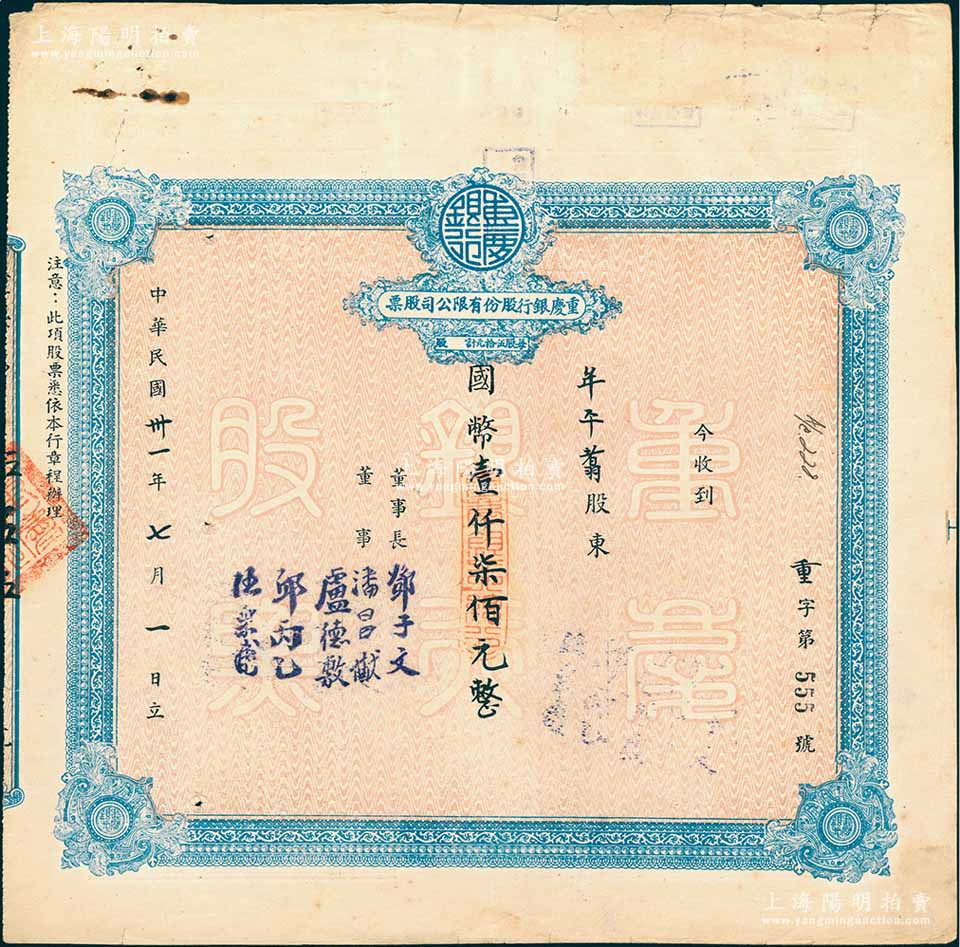 上海陽明拍賣
www.yangmingauction.com
重慶銀行
重慶銀行股份有限公司股票
每股伍拾元計 股
重字第555號
今收到
年千蓊股東
國幣壹仟柒佰元整
董事長 鄧子文
董事 潘昌猷
盧德敷
邱丙乙
中華民國卅一年七月一日立
注意：此項股票悉依本行章程辦理
重慶
銀行
股票
上海陽明拍賣
www.yangmingauction.com
上海陽明拍賣
www.yangmingauction.com